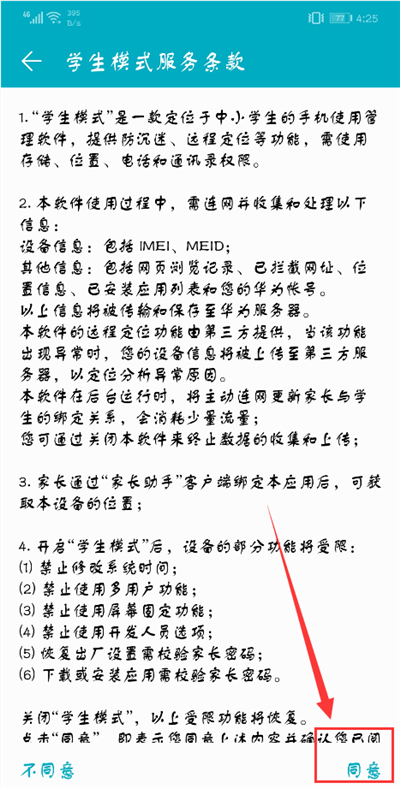 4G 395 B/s 77 4:25
学生模式服务条款
1.“学生模式”是一款定位于中小学生的手机使用管
理软件，提供防沉迷、远程定位等功能，需使用
存储、位置、电话和通讯录权限。
2. 本软件使用过程中，需连网并收集和处理以下
信息：
设备信息：包括 IMEI、MEID；
其他信息：包括网页浏览记录、已拦截网址、位
置信息、已安装应用列表和您的华为帐号。
以上信息将被传输和保存至华为服务器。
本软件的远程定位功能由第三方提供，当该功能
出现异常时，您的设备信息将被上传至第三方服
务器，以定位分析异常原因。
本软件在后台运行时，将主动连网更新家长与学
生的绑定关系，会消耗少量流量；
您可通过关闭本软件来终止数据的收集和上传；
3. 家长通过“家长助手”客户端绑定本应用后，可获
取本设备的位置；
4. 开启“学生模式”后，设备的部分功能将受限：
(1) 禁止修改系统时间；
(2) 禁止使用多用户功能；
(3) 禁止使用屏幕固定功能；
(4) 禁止使用开发人员选项；
(5) 恢复出厂设置需校验家长密码；
(6) 下载或安装应用需校验家长密码。
关闭“学生模式”，以上受限功能将恢复。
点击“同意”，即表示您同意上述内容并确认您已阅
不同意 同意